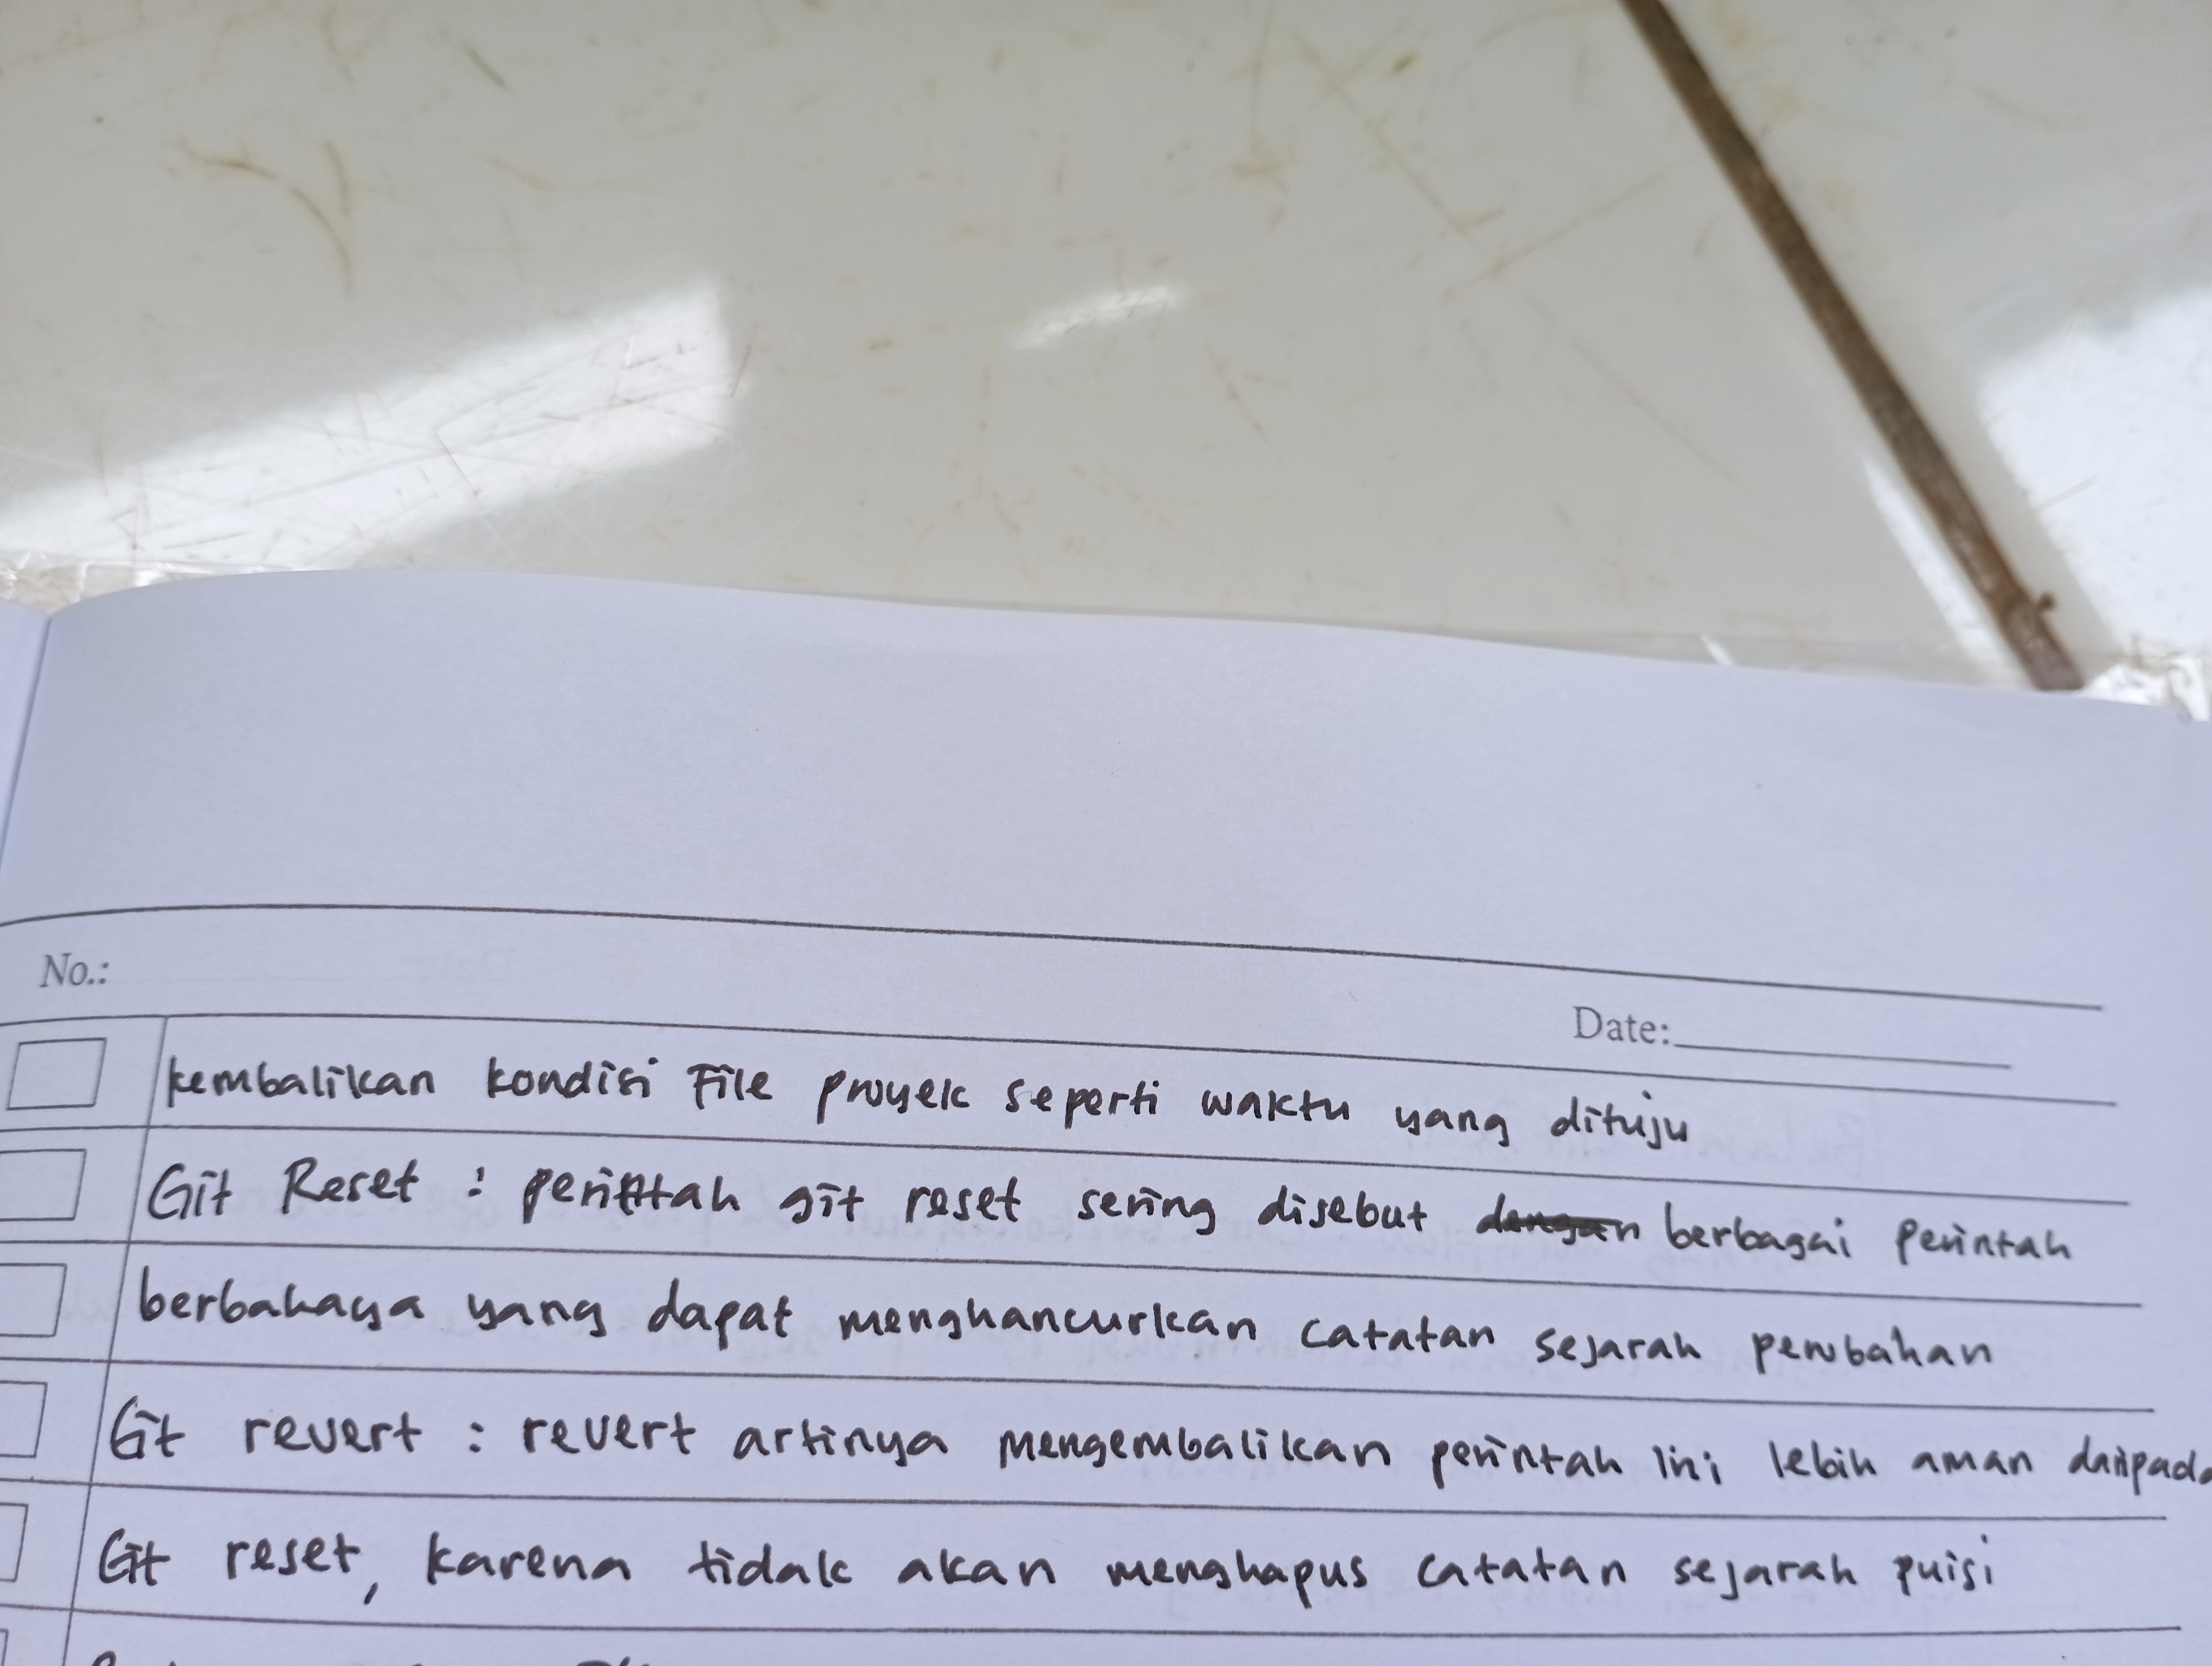 No.:
Date:
kembalikan kondisi File proyek seperti waktu yang dituju
Git Reset : perintah git reset sering disebut dengan berbagai perintah
berbahaya yang dapat menghancurkan catatan sejarah perubahan
Git revert : revert artinya mengembalikan perintah ini lebih aman daripada
Git reset, karena tidak akan menghapus catatan sejarah puisi